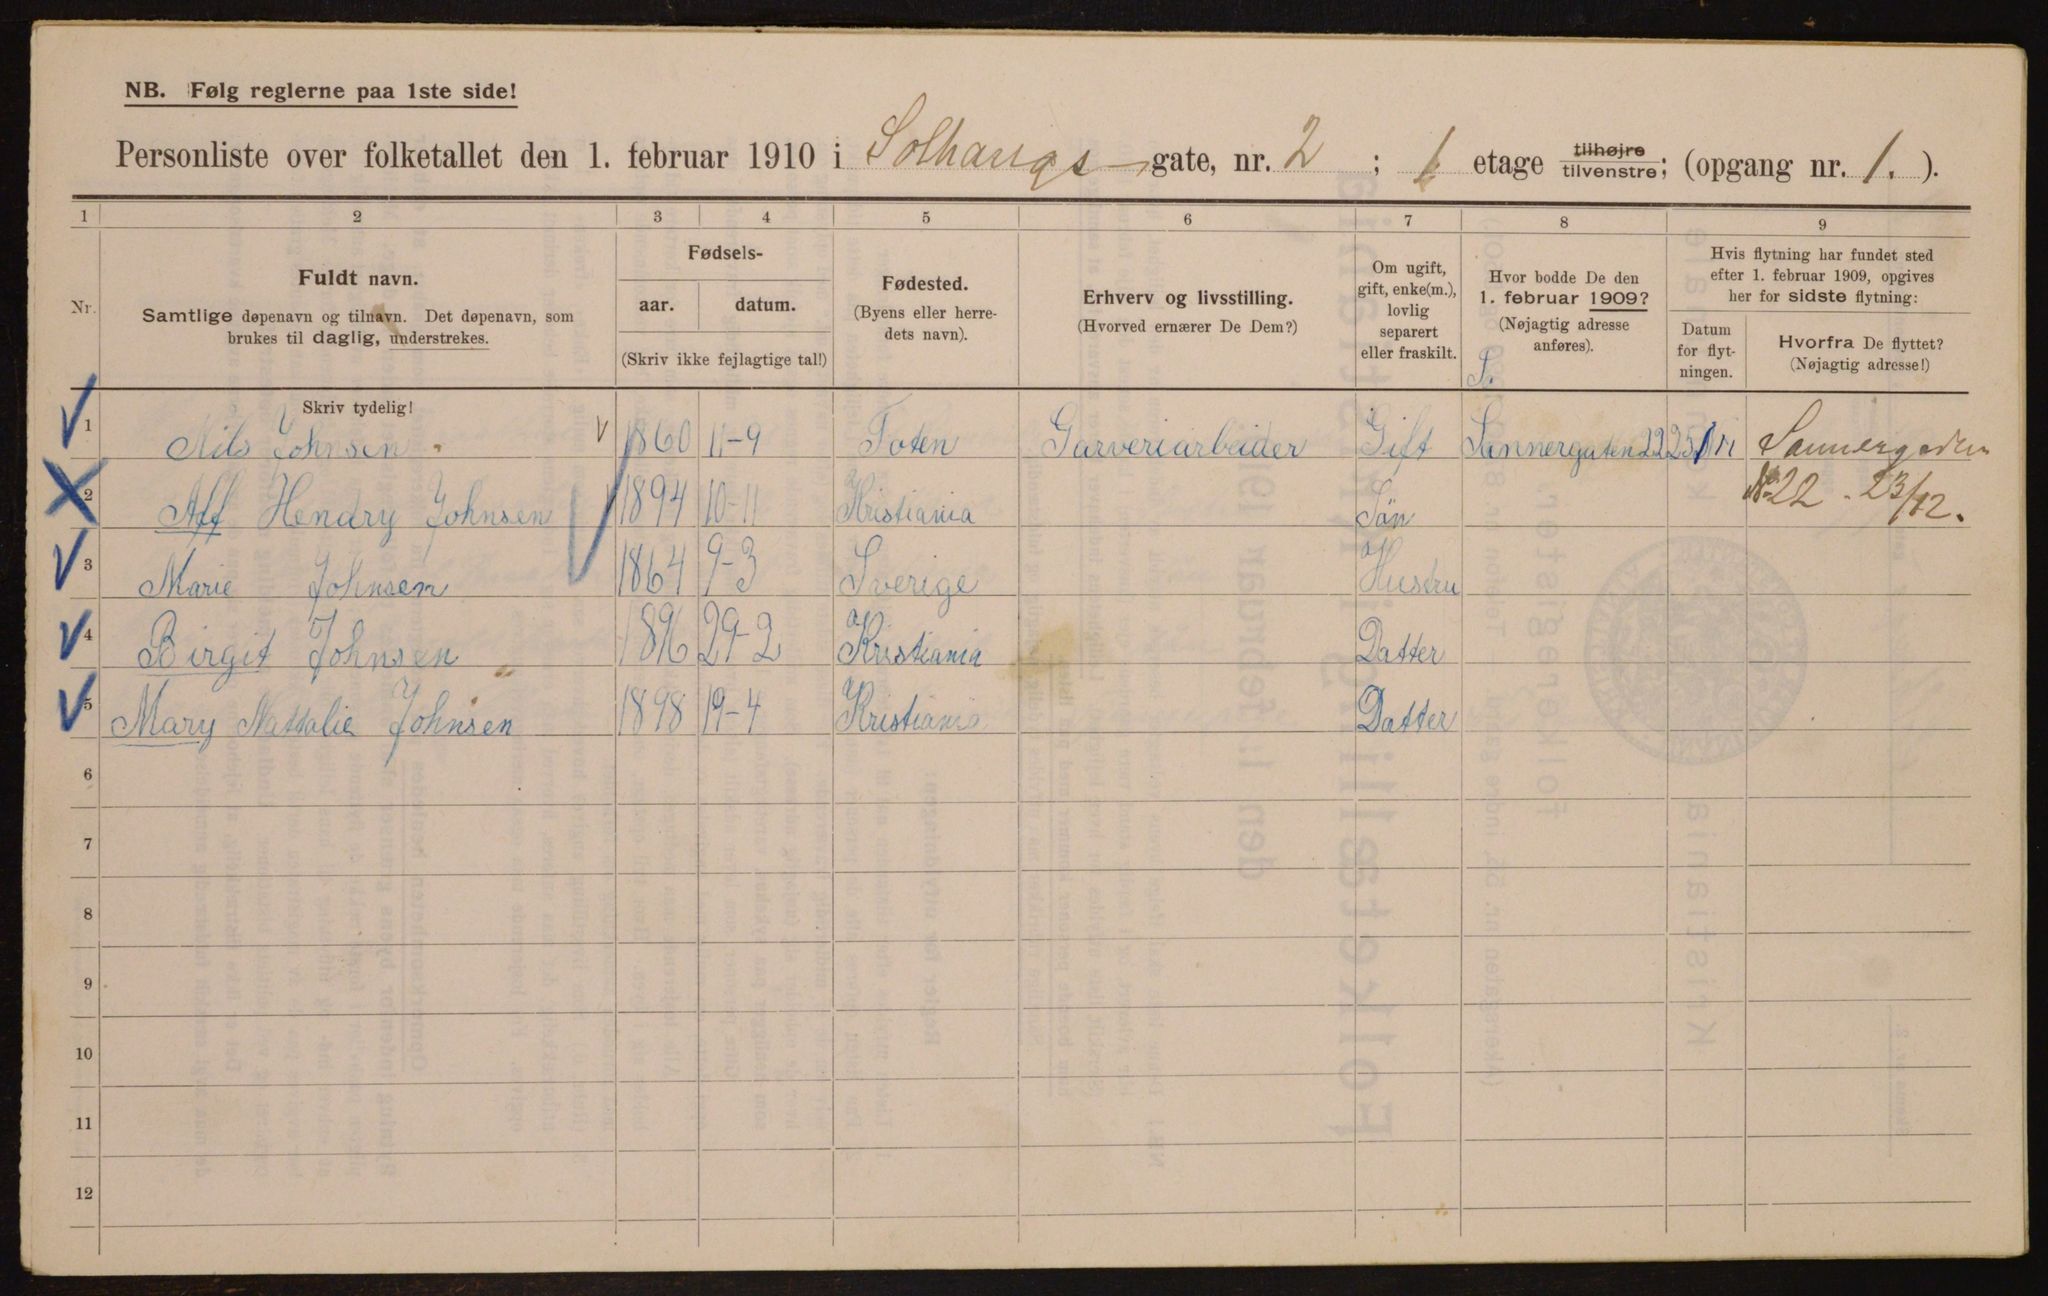 NB. Følg reglerne paa 1ste side!
Personliste over folketallet den 1. februar 1910 i Solhaugs gate, nr. 2 ; 1 etage tilhøjre tilvenstre; (opgang nr. 1. ).
1 2 3 4 5 6 7 8 9
Nr.
Fuldt navn.
Samtlige døpenavn og tilnavn. Det døpenavn, som
brukes til daglig, understrekes.
Fødsels-
aar. datum.
(Skriv ikke fejlagtige tal!)
Fødested.
(Byens eller herre-
dets navn).
Erhverv og livsstilling.
(Hvorved ernærer De Dem?)
Om ugift,
gift, enke(m.),
lovlig
separert
eller fraskilt.
Hvor bodde De den
1. februar 1909?
(Nøjagtig adresse
anføres).
Hvis flytning har fundet sted
efter 1. februar 1909, opgives
her for sidste flytning:
Datum
for flyt-
ningen.
Hvorfra De flyttet?
(Nøjagtig adresse!)
Skriv tydelig!
1 Nils Johnsen 1860 11-9 Toten Garveriarbeider Gift Sannergaten 22 Sannergaden
2 Aff Hendry Johnsen 1894 10-11 Kristiania Sön No 22 - 23/12.
3 Marie Johnsen 1864 9-3 Sverige Hustru
4 Birgit Johnsen 1896 29-2 Kristiania Datter
5 Mary Nattalie Johnsen 1898 19-4 Kristiania Datter
6
7
8
9
10
11
12